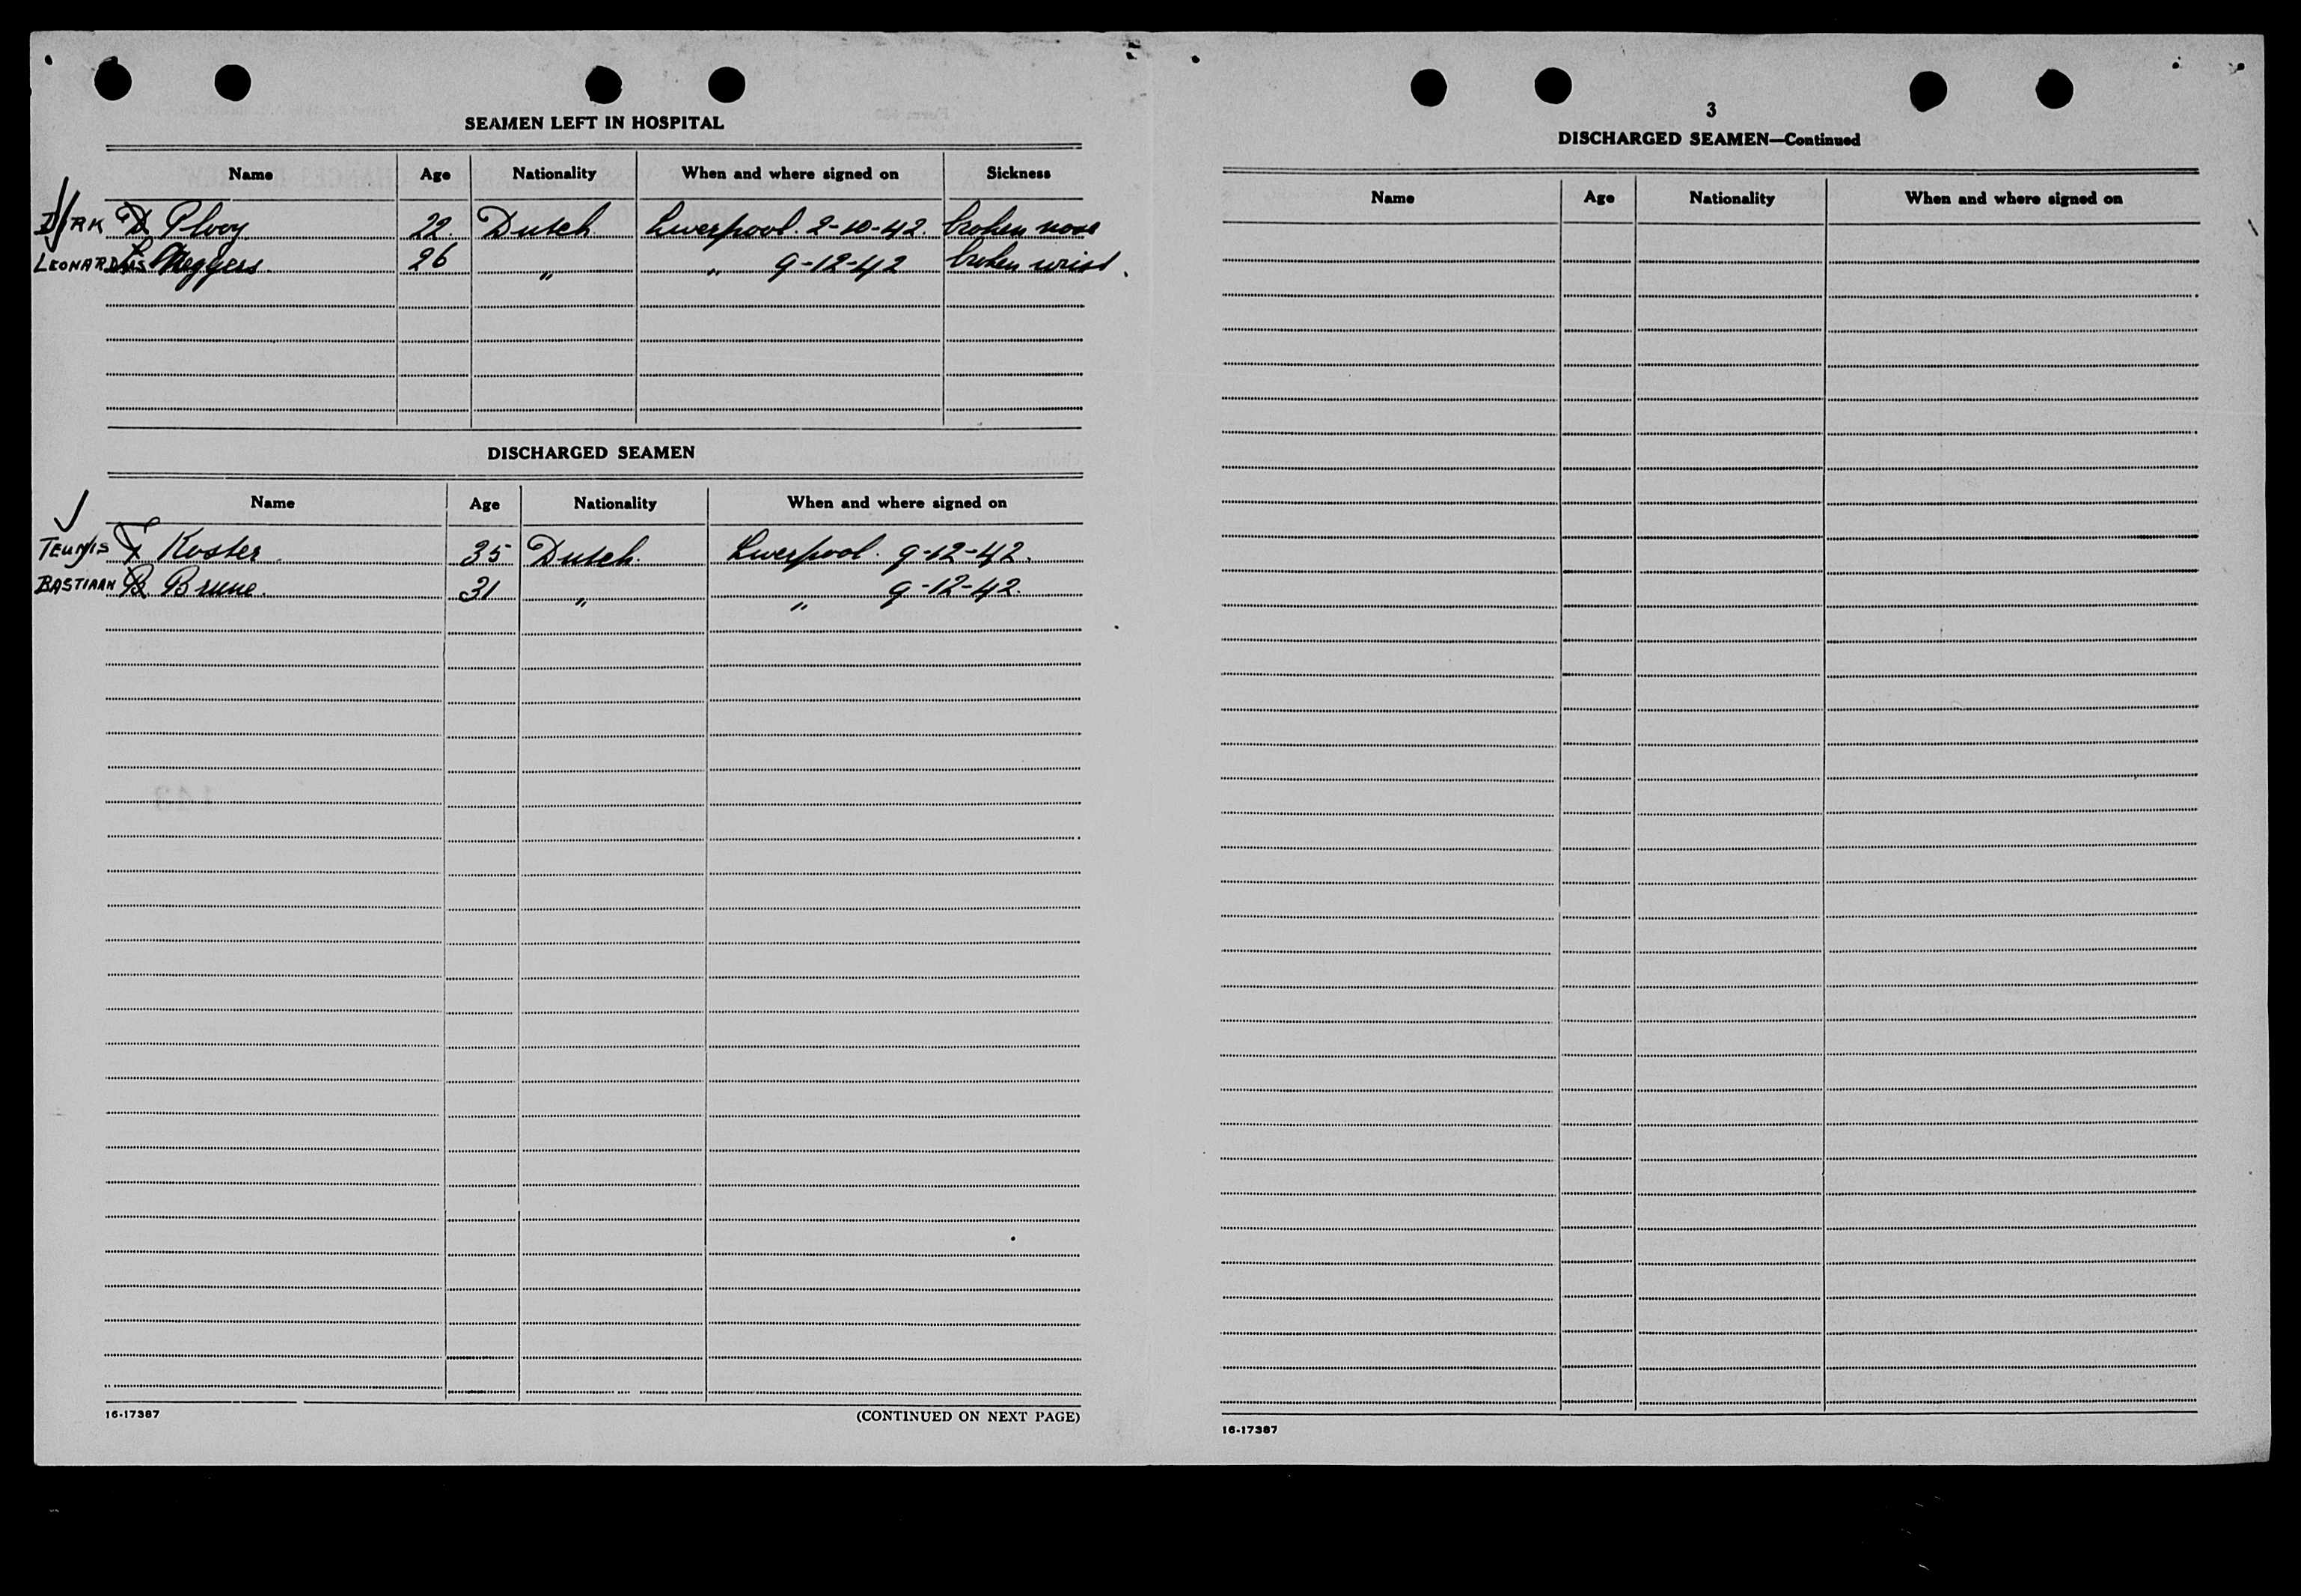 SEAMEN LEFT IN HOSPITAL
Name Age Nationality When and where signed on Sickness
DIRK D Ploey 22. Dutch Liverpool. 2-10-42. broken nose
LEONARDUS L Neggers. 26 " " 9-12-42 broken wrist.
DISCHARGED SEAMEN
Name Age Nationality When and where signed on
TEUNIS T Koster. 35 Dutch. Liverpool. 9-12-42.
BASTIAAN B Brune. 31 " " 9-12-42.
16-17387 (CONTINUED ON NEXT PAGE)
3
DISCHARGED SEAMEN—Continued
Name Age Nationality When and where signed on
16-17387